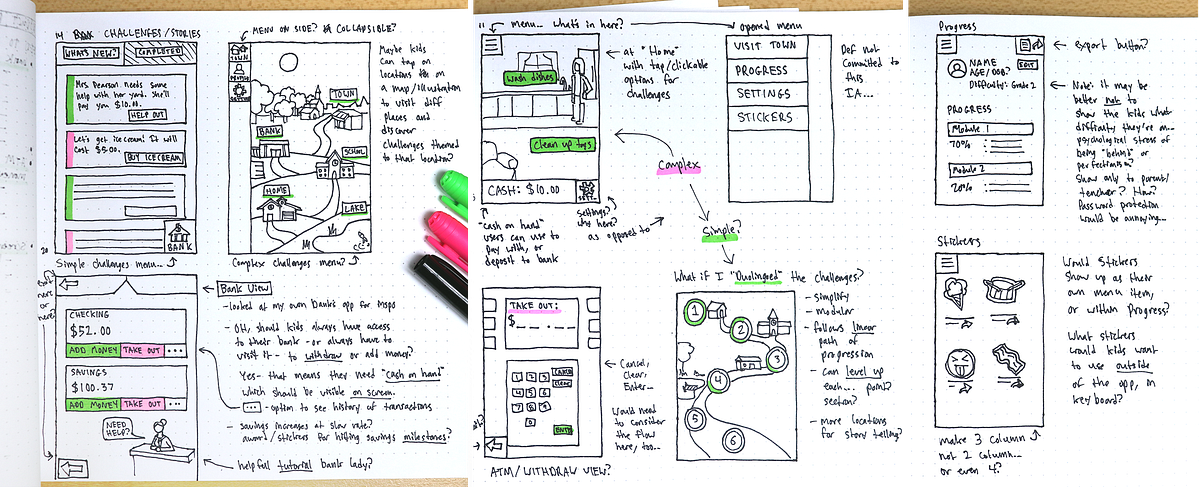 BANK CHALLENGES/STORIES
WHAT'S NEW?
COMPLETED
Mrs Pearson needs some
help with her yard. She'll
pay you $10.00.
HELP OUT
Let's get ice cream! It will
Cost $5.00.
BUY ICECREAM
BANK
20
Simple challenges menu...
MENU ON SIDE? COLLAPSIBLE?
TOWN
PROFILE
SETTING
TOWN
BANK
SCHOOL
HOME
LAKE
Complex challenges menu?
Maybe kids
Can tap on
locations on
a map/illustration
to visit diff
places and
discover
challenges themed
to that location?
Exit
here or
here?
CHECKING
$52.00
ADD MONEY TAKE OUT ...
SAVINGS
$100.37
ADD MONEY TAKE OUT ...
NEED
HELP?
Bank View
- looked at my own bank's app for inspo
- OH, should kids always have access
to their bank - or always have to
visit it - to withdraw or add money?
Yes - that means they need "Cash on hand"
which should be visible on screen.
... - option to see history of transactions
- Savings increases at slow rate?
award/stickers for hitting savings milestones?
helpful tutorial bank lady?
menu... what's in here?
opened menu
wash dishes
clean up toys
CASH: $10.00
SETT.
at "Home"
with tap/clickable
options for
challenges
VISIT TOWN
PROGRESS
SETTINGS
STICKERS
Def not
Committed to
this
IA...
"cash on hand"
users can use to
pay with, or
deposit to bank
settings?
why here?
as opposed to
Complex
Simple?
TAKE OUT:
$ __ . __
1 2 3
4 5 6
7 8 9
0
CANCEL
CLEAR
ENTER
ATM/WITHDRAW VIEW?
Cancel,
Clear,
Enter...
Would need
to consider
the flow
here, too...
What if I "Duolingoed" the challenges?
1
2
3
4
5
6
- simplify
- modular
- follows linear
path of
progression
- can level up
each... point?
section?
- more locations
for story telling?
Progress
NAME
AGE/DOB?
EDIT
Difficulty: Grade 2
PROGRESS
Module 1
70%
Module 2
20%
export button?
Note: it may be
better not to
show the kids what
difficulty they're on...
psychological stress of
being "behind" or
perfectionism?
Show only to parent/
teacher? How?
Password protection
would be annoying...
Stickers
make 3 column
not 2 column...
or even 4?
Would Stickers
Show up as their
own menu item,
or within Progress?
What stickers
would kids want
to use outside
of the app, in
keyboard?